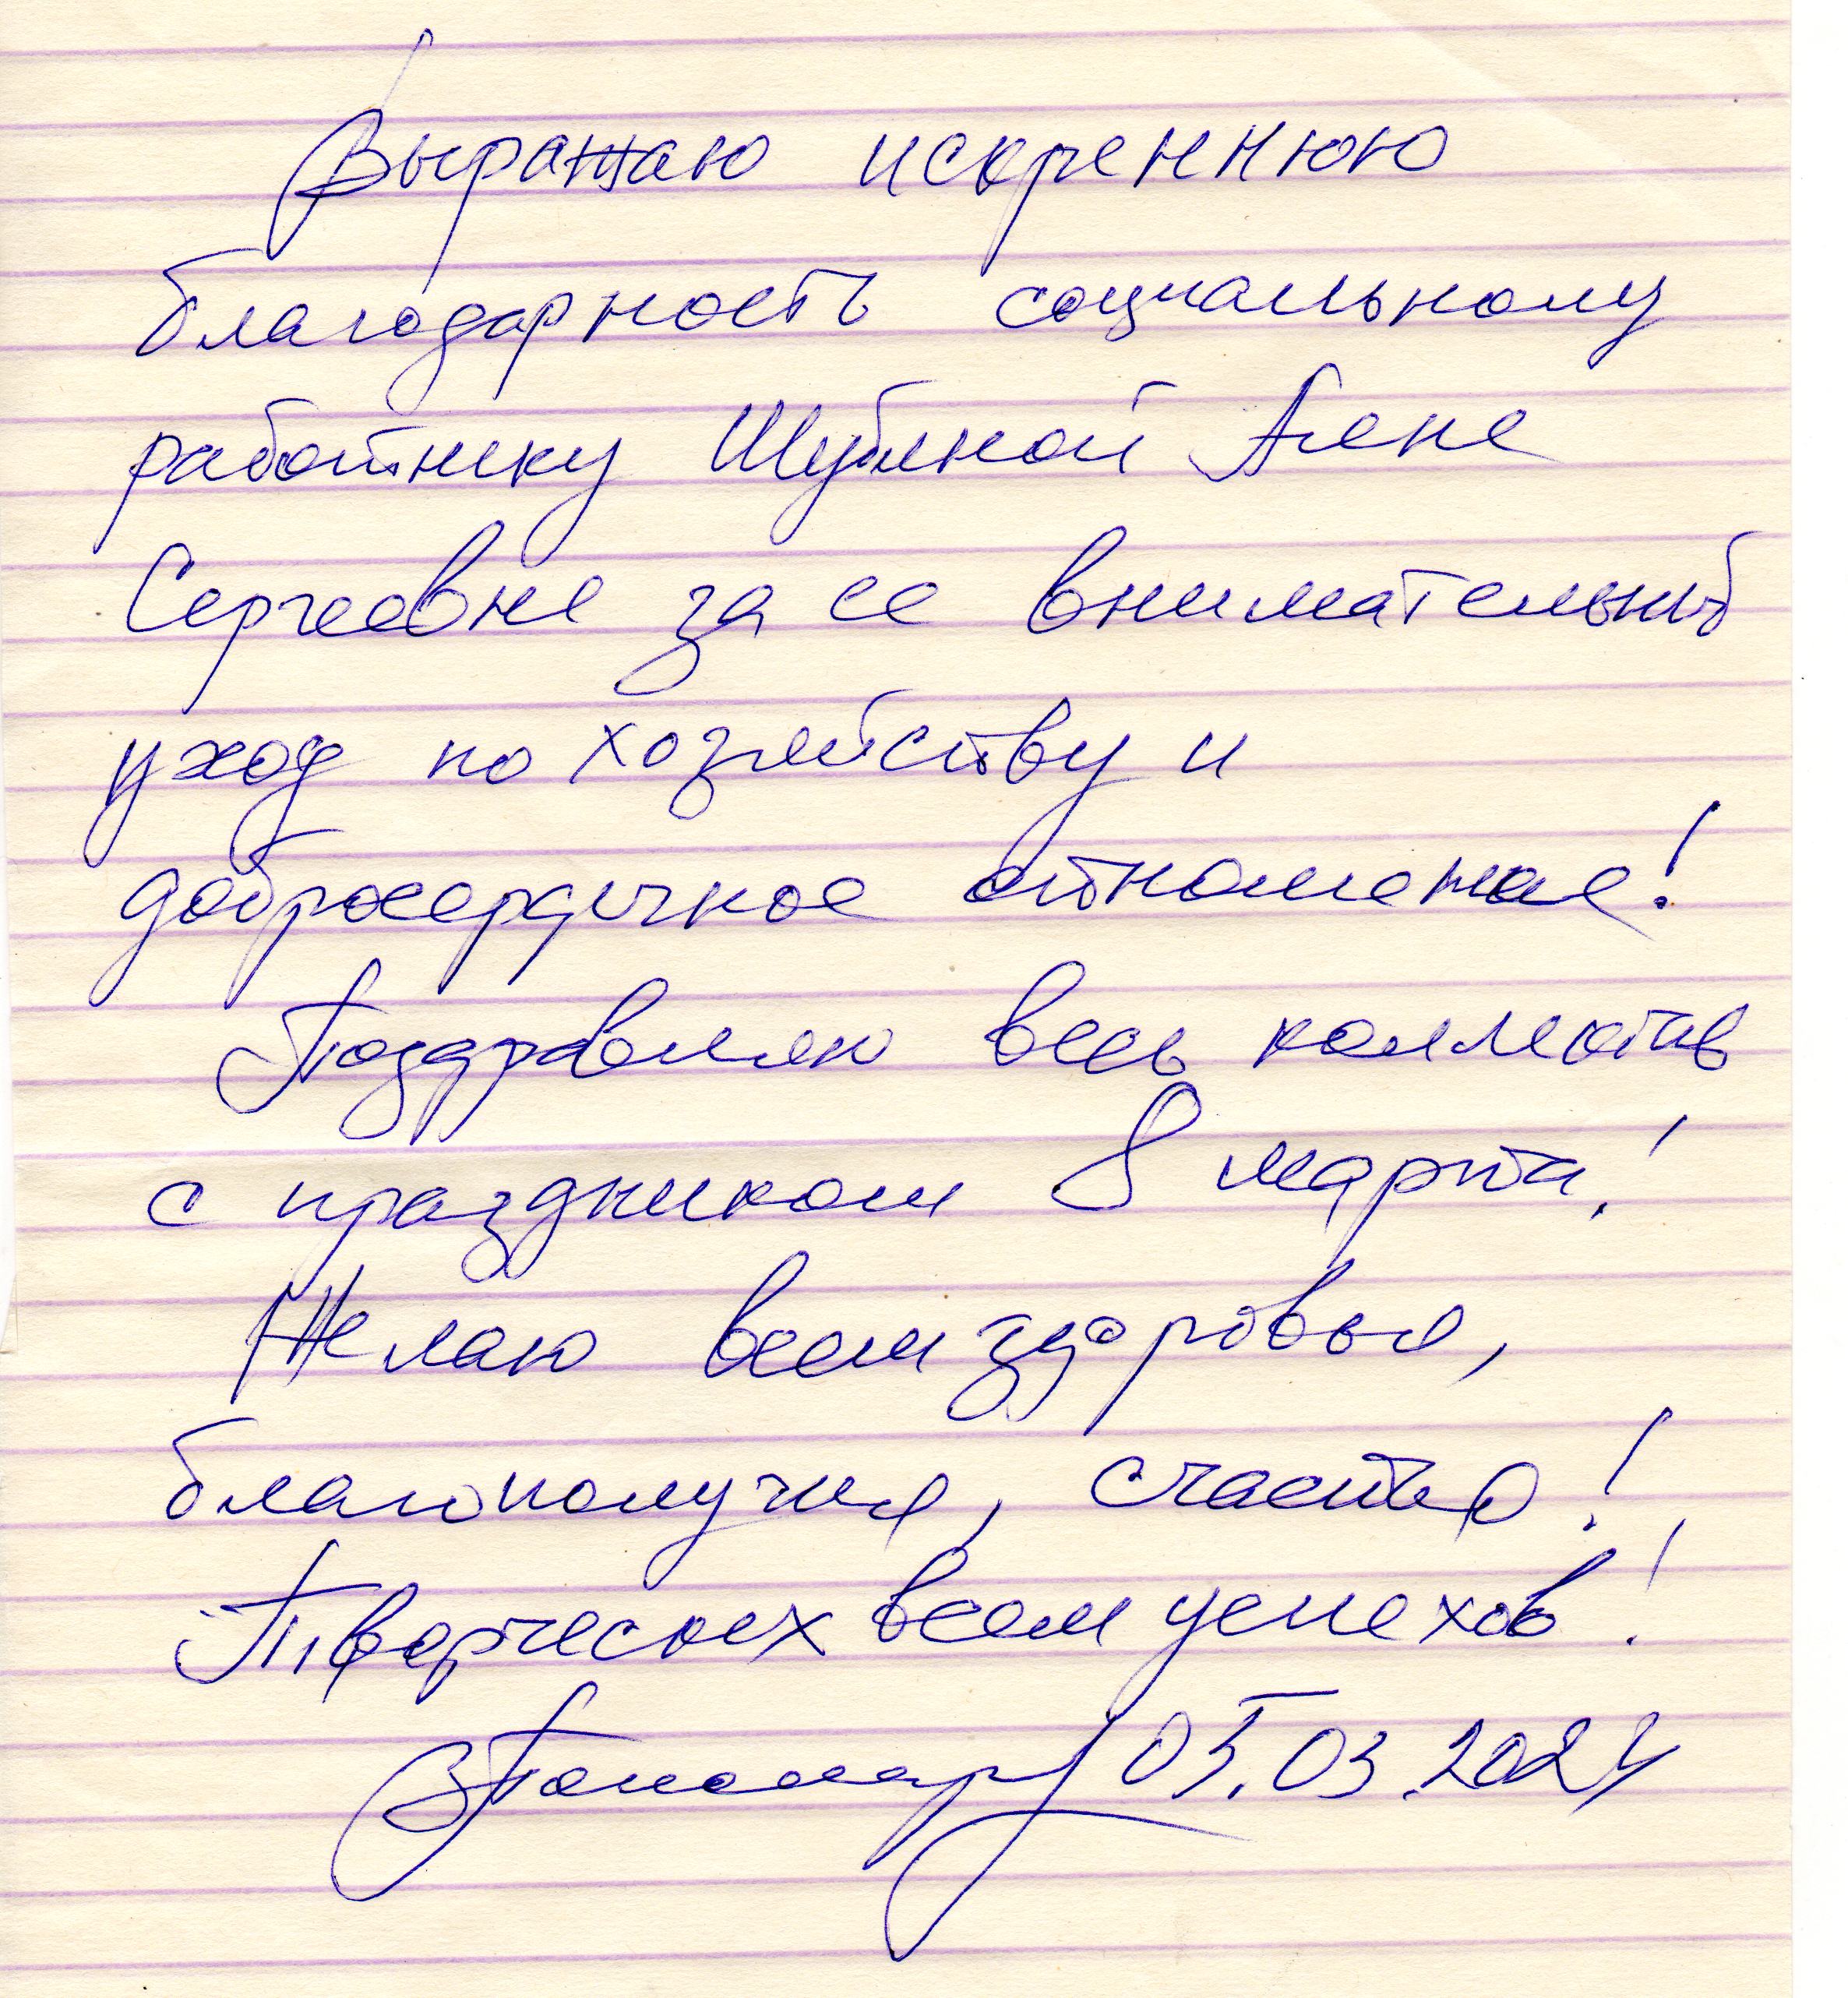 Выражаю искреннюю
благодарность социальному
работнику Шубиной Алене
Сергеевне за ее внимательный
уход по хозяйству и
добросердечное отношение!
Поздравляю весь коллектив
с праздником 8 марта!
Желаю всем здоровья,
благополучия, счастья!
Творческих всем успехов!
05.03.2024